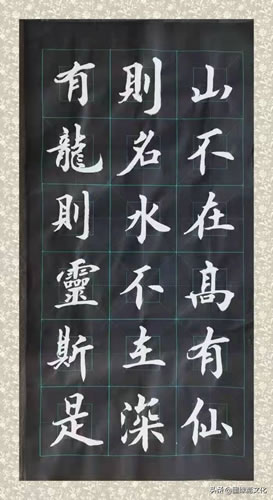 山不在髙有仙
則名水不在深
有龍則靈斯是
头条 @文化